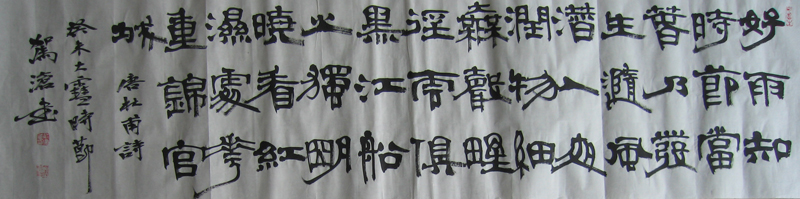 好雨知
時節當
春乃發
生隨風
潛入夜
潤物細
無聲野
徑雲俱
黑江船
火獨明
曉看紅
濕處花
重錦官
城 唐杜甫詩
癸未大雪時節
書